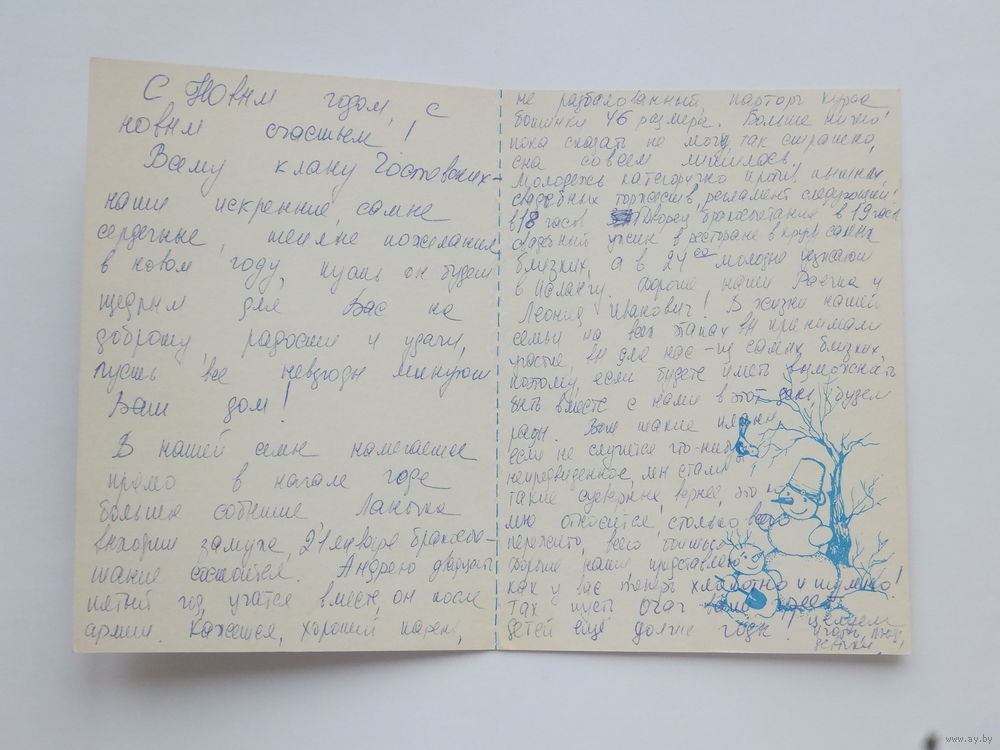 С Новым годом, с
новым счастьем!
Всему клану Гостовских-
наши искренние, самые
сердечные, теплые пожелания
в новом году, пусть он будет
щедрым для Вас на
доброту, радости и удачи,
пусть все невзгоды минуют
Ваш дом!
В нашей семье намечается
прямо в начале года
большое событие Ланочка
выходит замуж, 21 января бракосоче-
тание состоится. Андрею двадцать
пятый год, учатся вместе, он после
армии. Кажется, хороший парень,
не разбалованный, парторг курса
ботинки 46 размера. Больше ничего
пока сказать не могу, так страшно,
сна совсем лишилась.
Молодежь категорично против пышных
свадебных торжеств, регламент следующий:
в 18 часов Дворец бракосочетания в 19 часов
свадебный ужин в ресторане в кругу самых
близких, а в 24 молодые уезжают
в Дорогие наши и
Леонид Иванович! В жизни нашей
семьи на всех этапах вы принимали
участие, вы для нас -из самых близких,
поэтому, если будете иметь возможность
быть вместе с нами в этот день, будем
рады. Вот такие планы
если не случится что-ниб
непредвиденное, мы стали
такие сдержанные, вернее, это ко
мне относится, столько всего
пережито, всего боишься
наши представляю
как у вас теперь хлопотно и шумно!
Так пусть очаг ваш греет
детей ещё долгие годы! целуем
Игорь,